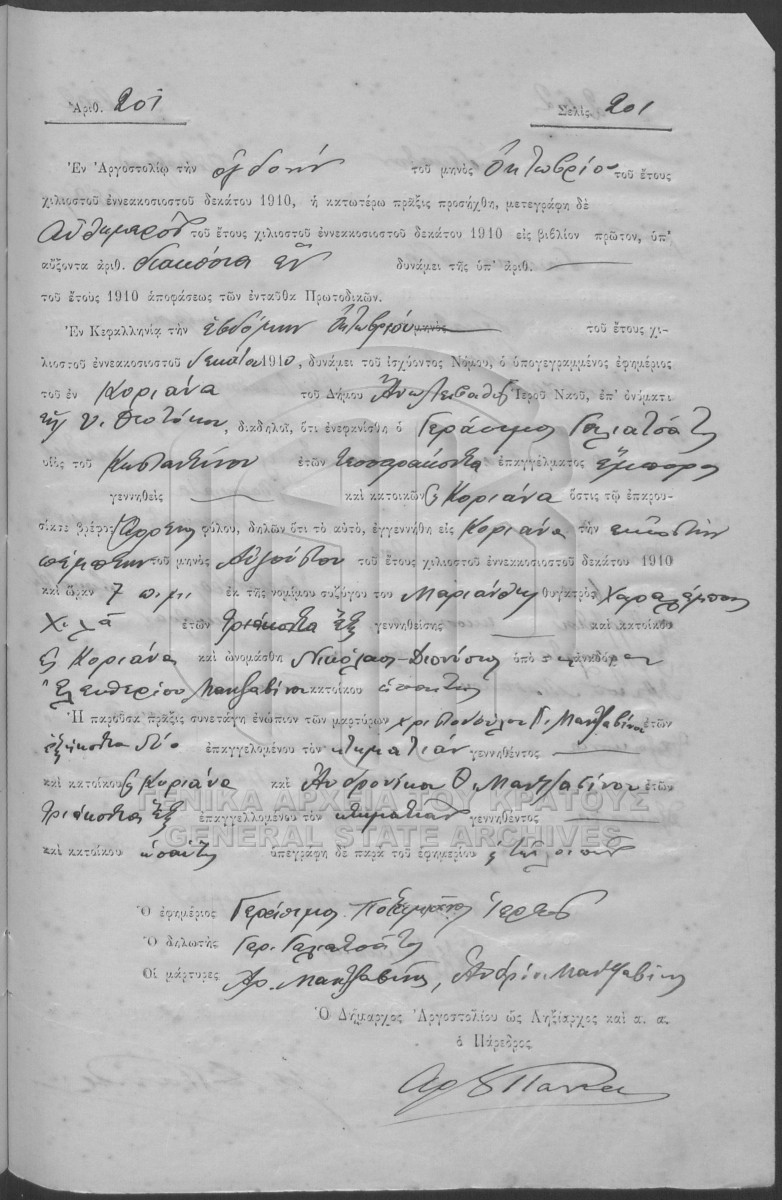 Ἀριθ. 201 Σελὶς 201
Ἐν Ἀργοστολίῳ τὴν ὀγδόην τοῦ μηνὸς Ὀκτωβρίου τοῦ ἔτους
χιλιοστοῦ ἐννεακοσιοστοῦ δεκάτου 1910, ἡ κατωτέρω πρᾶξις προσήχθη, μετεγράφη δὲ
Αὐθημερὸν τοῦ ἔτους χιλιοστοῦ ἐννεακοσιοστοῦ δεκάτου 1910 εἰς βιβλίον πρῶτον, ὑπ'
αὔξοντα ἀριθ. διακόσια ἓν δυνάμει τῆς ὑπ' ἀριθ.
τοῦ ἔτους 1910 ἀποφάσεως τῶν ἐνταῦθα Πρωτοδικῶν.
Ἐν Κεφαλληνίᾳ τὴν ἑβδόμην Ὀκτωβρίου μηνὸς τοῦ ἔτους χι-
λιοστοῦ ἐννεακοσιοστοῦ δεκάτου 1910, δυνάμει τοῦ ἰσχύοντος Νόμου, ὁ ὑπογεγραμμένος ἐφημέριος
τοῦ ἐν Κοριάνα τοῦ Δήμου Ἄνω Λειβαθοῦς Ἱεροῦ Ναοῦ, ἐπ' ὀνόματι
τῆς Υ. Θεοτόκου, διαδηλοῖ, ὅτι ἐνεφανίσθη ὁ Γεράσιμος Γαλιατσάτος
υἱὸς τοῦ Κωσταντίνου ἐτῶν τεσσαράκοντα ἐπαγγέλματος ἔμπορος
γεννηθεὶς καὶ κατοικῶν ἐς Κοριάνα ὅστις τῷ ἐπαρου-
σίασε βρέφος ἄρρενος φύλου, δηλῶν ὅτι τὸ αὐτὸ, ἐγεννήθη εἰς Κοριάνα τὴν εἰκοστὴν
πέμπτην τοῦ μηνὸς Αὐγούστου τοῦ ἔτους χιλιοστοῦ ἐννεακοσιοστοῦ δεκάτου 1910
καὶ ὥραν 7 π.μ. ἐκ τῆς νομίμου συζύγου του Μαριάνθης θυγατρὸς Χαραλάμπους
Χιλᾶ ἐτῶν τριάκοντα ἓξ γεννηθείσης καὶ κατοίκου
ἐς Κοριάνα καὶ ὠνομάσθη Νικόλαος-Διονύσιος ὑπὸ ἀναδόχου
Ἐλευθερίου Μαντζαβίνου κατοίκου ὡσαύτως
Ἡ παροῦσα πρᾶξις συνετάγη ἐνώπιον τῶν μαρτύρων Χριστοπούλου Γ. Μαντζαβίνου ἐτῶν
ἑξήκοντα δύο ἐπαγγελομένου τὸν κτηματίαν γεννηθέντος
καὶ κατοίκου ἐς Κοριάνα καὶ Ἀνδρονίκου Θ. Μαντζαβίνου ἐτῶν
τριάκοντα ἓξ ἐπαγγελλομένου τὸν κτηματίαν γεννηθέντος
καὶ κατοίκου ὡσαύτως ὑπεγράφη δὲ παρὰ τοῦ ἐφημερίου
Ὁ ἐφημέριος Γεράσιμος Ποταμιάνος Ἱερεύς
Ὁ δηλωτὴς Γερ. Γαλιατσάτος
Οἱ μάρτυρες Χρ. Μαντζαβίνος, Ἀνδρόν. Μαντζαβίνος
Ὁ Δήμαρχος Ἀργοστολίου ὡς Ληξίαρχος καὶ α. α.
ὁ Πάρεδρος
ΓΕΝΙΚΑ ΑΡΧΕΙΑ ΤΟΥ ΚΡΑΤΟΥΣ
GENERAL STATE ARCHIVES